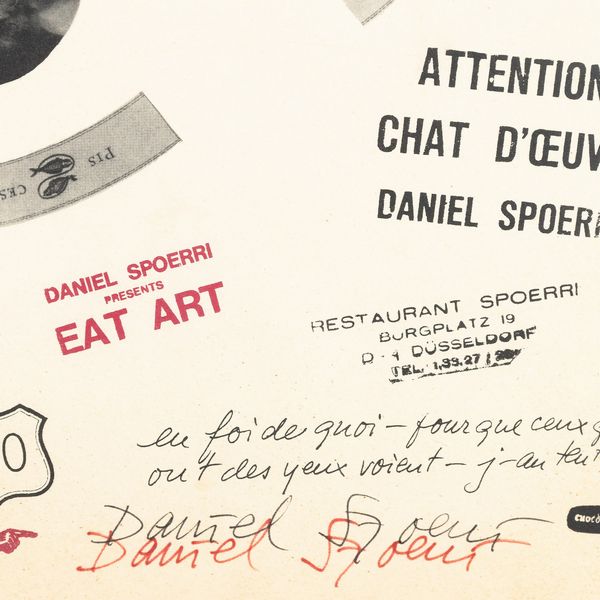 ATTENTION
CHAT D'ŒUV
DANIEL SPOERRI
PIS
CES
DANIEL SPOERRI
PRESENTS
EAT ART
RESTAURANT SPOERRI
BURGPLATZ 19
D - 4 DÜSSELDORF
TEL. 1.33.27 / 28
en foi de quoi - pour que ceux q
ont des yeux voient - j-au tent
0
Daniel Spoerri
Daniel Spoerri
CHOCO